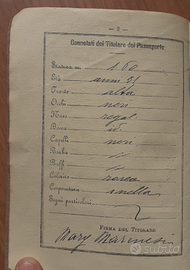 - 2 -
Connotati del Titolare del Passaporto
Statura m. 1.60
Età anni 21
Fronte alta
Occhi neri
Naso regol
Bocca id.
Capelli neri
Barba /
Baffi /
Colorito roseo
Corporatura snella
Segni particolari
FIRMA DEL TITOLARE
Mary Marinesi
subito